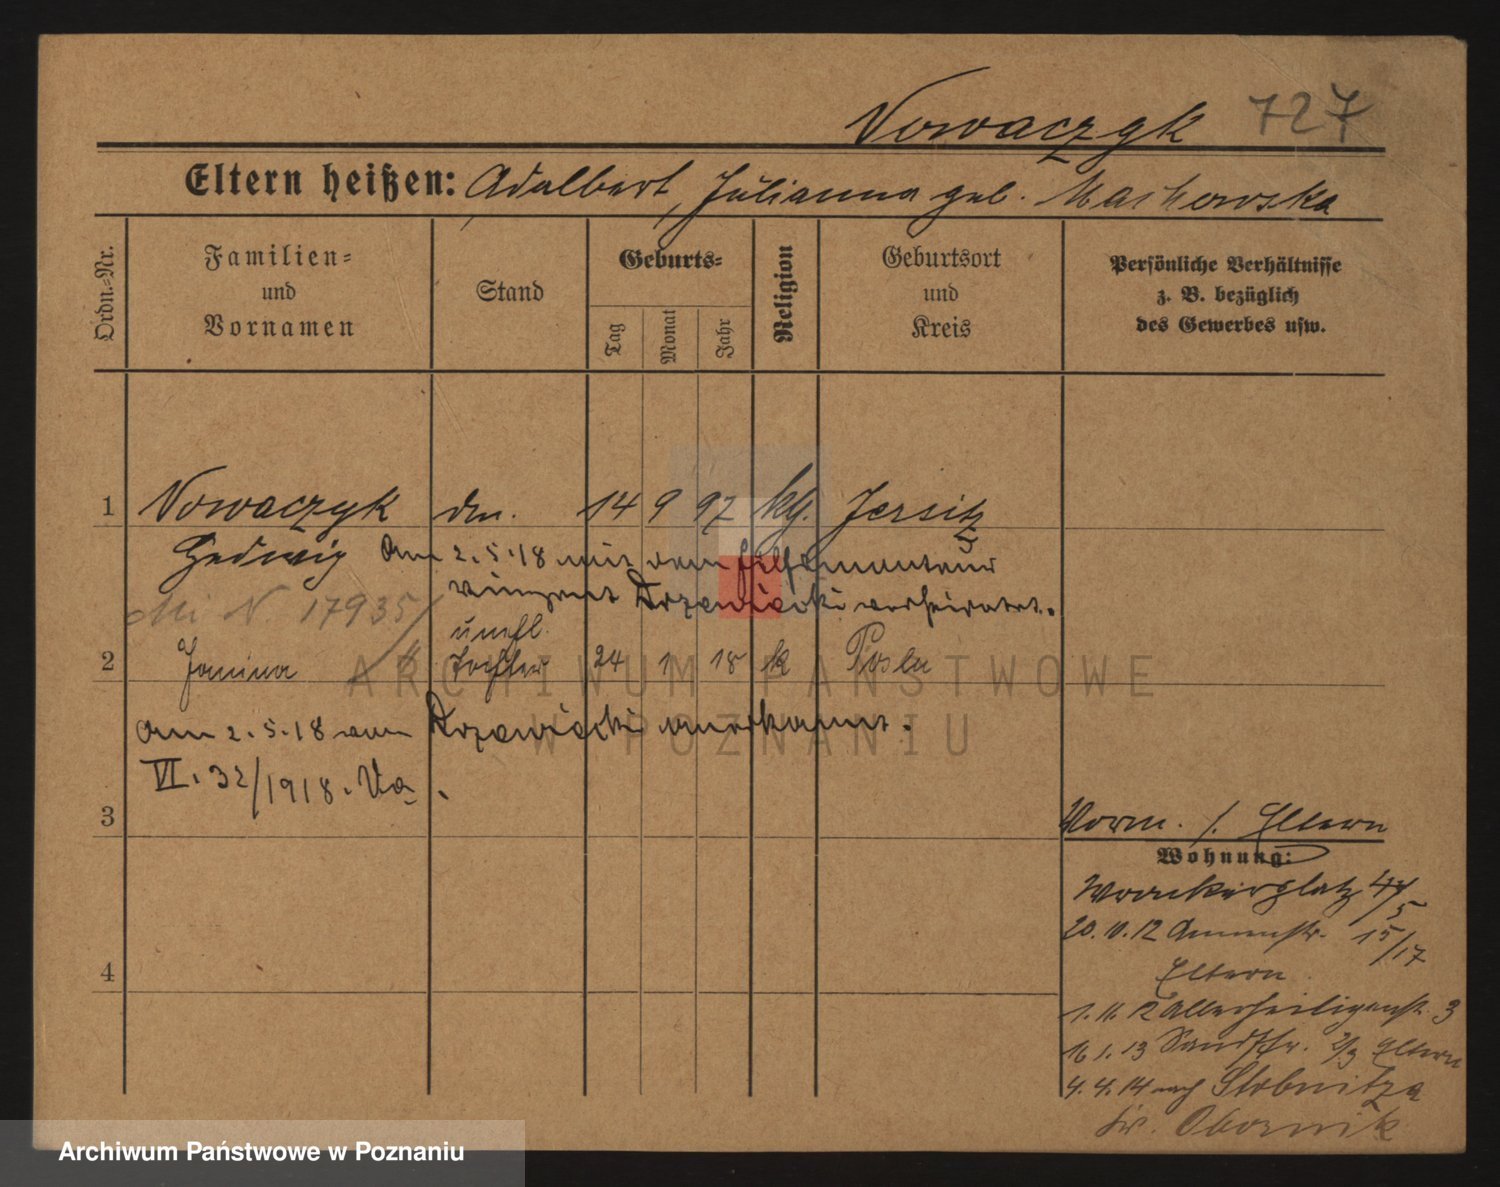 Nowaczyk 727
Eltern heißen: Adalbert, Julianna geb. Maćkowska
Ordn.-Nr.
Familien-
und
Vornamen
Stand
Geburts-
Tag
Monat
Jahr
Religion
Geburtsort
und
Kreis
Persönliche Verhältnisse
z. B. bezüglich
des Gewerbes usw.
1 Nowaczyk 14 9 97 kg. Jersitz
Hedwig Am 2.5.18 mit dem Hilfsmonteur
Vinzent Drzewiecki verheiratet.
N. 17935/
unehl.
2 Janina Tochter 24 1 18 k Posen
Am 2.5.18 von Drzewiecki anerkannt.
VI. 32/1918.
3
Vorm. s. Eltern
Wohnung:
Wronkerplatz 4/5
20.10.12 Annenstr. 15/17
Eltern
1.11.12 Allerheiligenstr. 3
16.1.13 Sandstr. 2/3 Eltern
4.4.14 nach Slobnitza
Kr. Obornik
4
ARCHIWUM PAŃSTWOWE
W POZNANIU
Archiwum Państwowe w Poznaniu